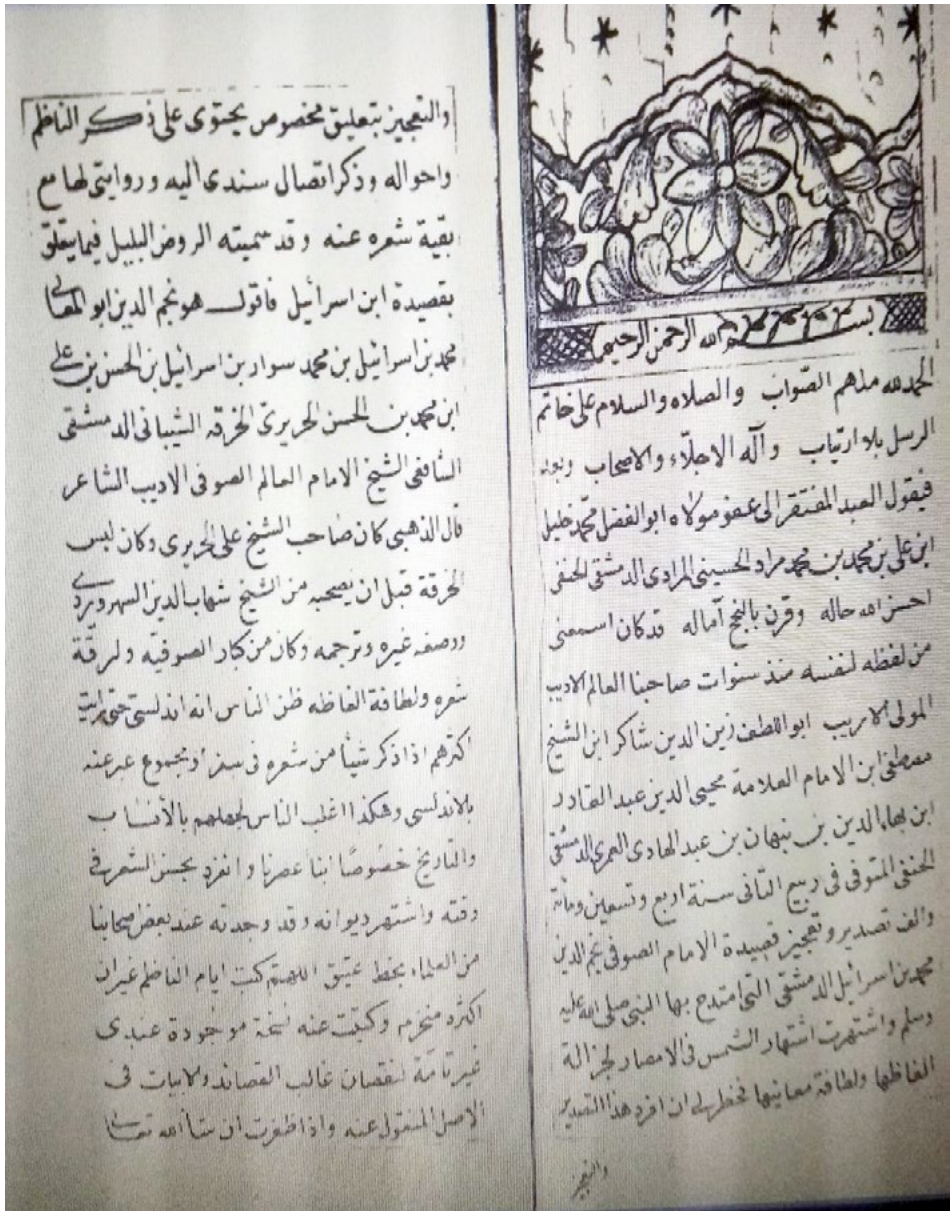 بسم الله الرحمن الرحيم
الحمد لله ملهم الصواب والصلاه والسلام على خاتم
الرسل بلا ارتياب وآله الاجلاء والاصحاب وبعد
فيقول العبد المفتقر الى عفو مولاه ابو الفضل محمد خليل
ابن على بن محمد بن محمد مراد الحسينى المرادى الدمشقى الحنفى
احسن الله حاله وقرن بالنجح آماله قد كان اسمعنى
من لفظه لنفسه منذ سنوات صاحبنا العالم الاديب
المولى الاريب ابو اللطف زين الدين شاكر ابن الشيخ
مصطفى ابن الامام العلامة محيى الدين عبد القادر
ابن بهاء الدين بن نبهان بن عبد الهادى العمرى الدمشقى
الحنفى المتوفى فى ربيع الثانى سنة اربع وتسعين ومائة
والف تصدير وتعجيز قصيدة الامام الصوفى نجم الدين
محمد بن اسرائيل الدمشقى التى امتدح بها النبى صلى الله عليه
وسلم واشتهرت اشتهار الشمس فى الامصار لجزالة
الفاظها ولطافة معانيها فخطر لى ان افرد هذا التصدير
والتعجيز
والتعجيز بتعليق مخصوص يحتوى على ذكر الناظم
واحواله وذكر اتصال سندى اليه وروايتى لها مع
بقية شعره عنه وقد سميته الروض البليل فيما يتعلق
بقصيدة ابن اسرائيل فاقول هو نجم الدين ابو المعالى
محمد بن اسرائيل بن محمد سوار بن اسرائيل بن الحسن بن على
ابن محمد بن الحسن الحريرى الخرقة الشيبانى الدمشقى
الشافعى الشيخ الامام العالم الصوفى الاديب الشاعر
قال الذهبى كان صاحب الشيخ على الحريرى وكان لبس
الخرقة قبل ان يصحبه من الشيخ شهاب الدين السهروردى
ووصفه غيره وترجمه وكان من كبار الصوفيه ولرقة
شعره ولطافة الفاظه ظن الناس انه اندلسى حتى رايت
اكثرهم اذا ذكر شيأ من شعره فى سفر أو مجموع عبر عنه
بالاندلسى وهكذا اغلب الناس لجهلهم بالأنساب
والتاريخ خصوصًا ابنا عصرنا وانفرد بحسن الشعر فى
وقته واشتهر ديوانه وقد وجدته عند بعض اصحابنا
من العلماء بخط عتيق كتب ايام الناظم غير ان
اكثره منخرم وكتبت عنه نسخة موجودة عندى
غير تامة لنقصان غالب القصائد والابيات فى
الاصل المنقول عنه واذا ظفرت ان شآ الله تعالى